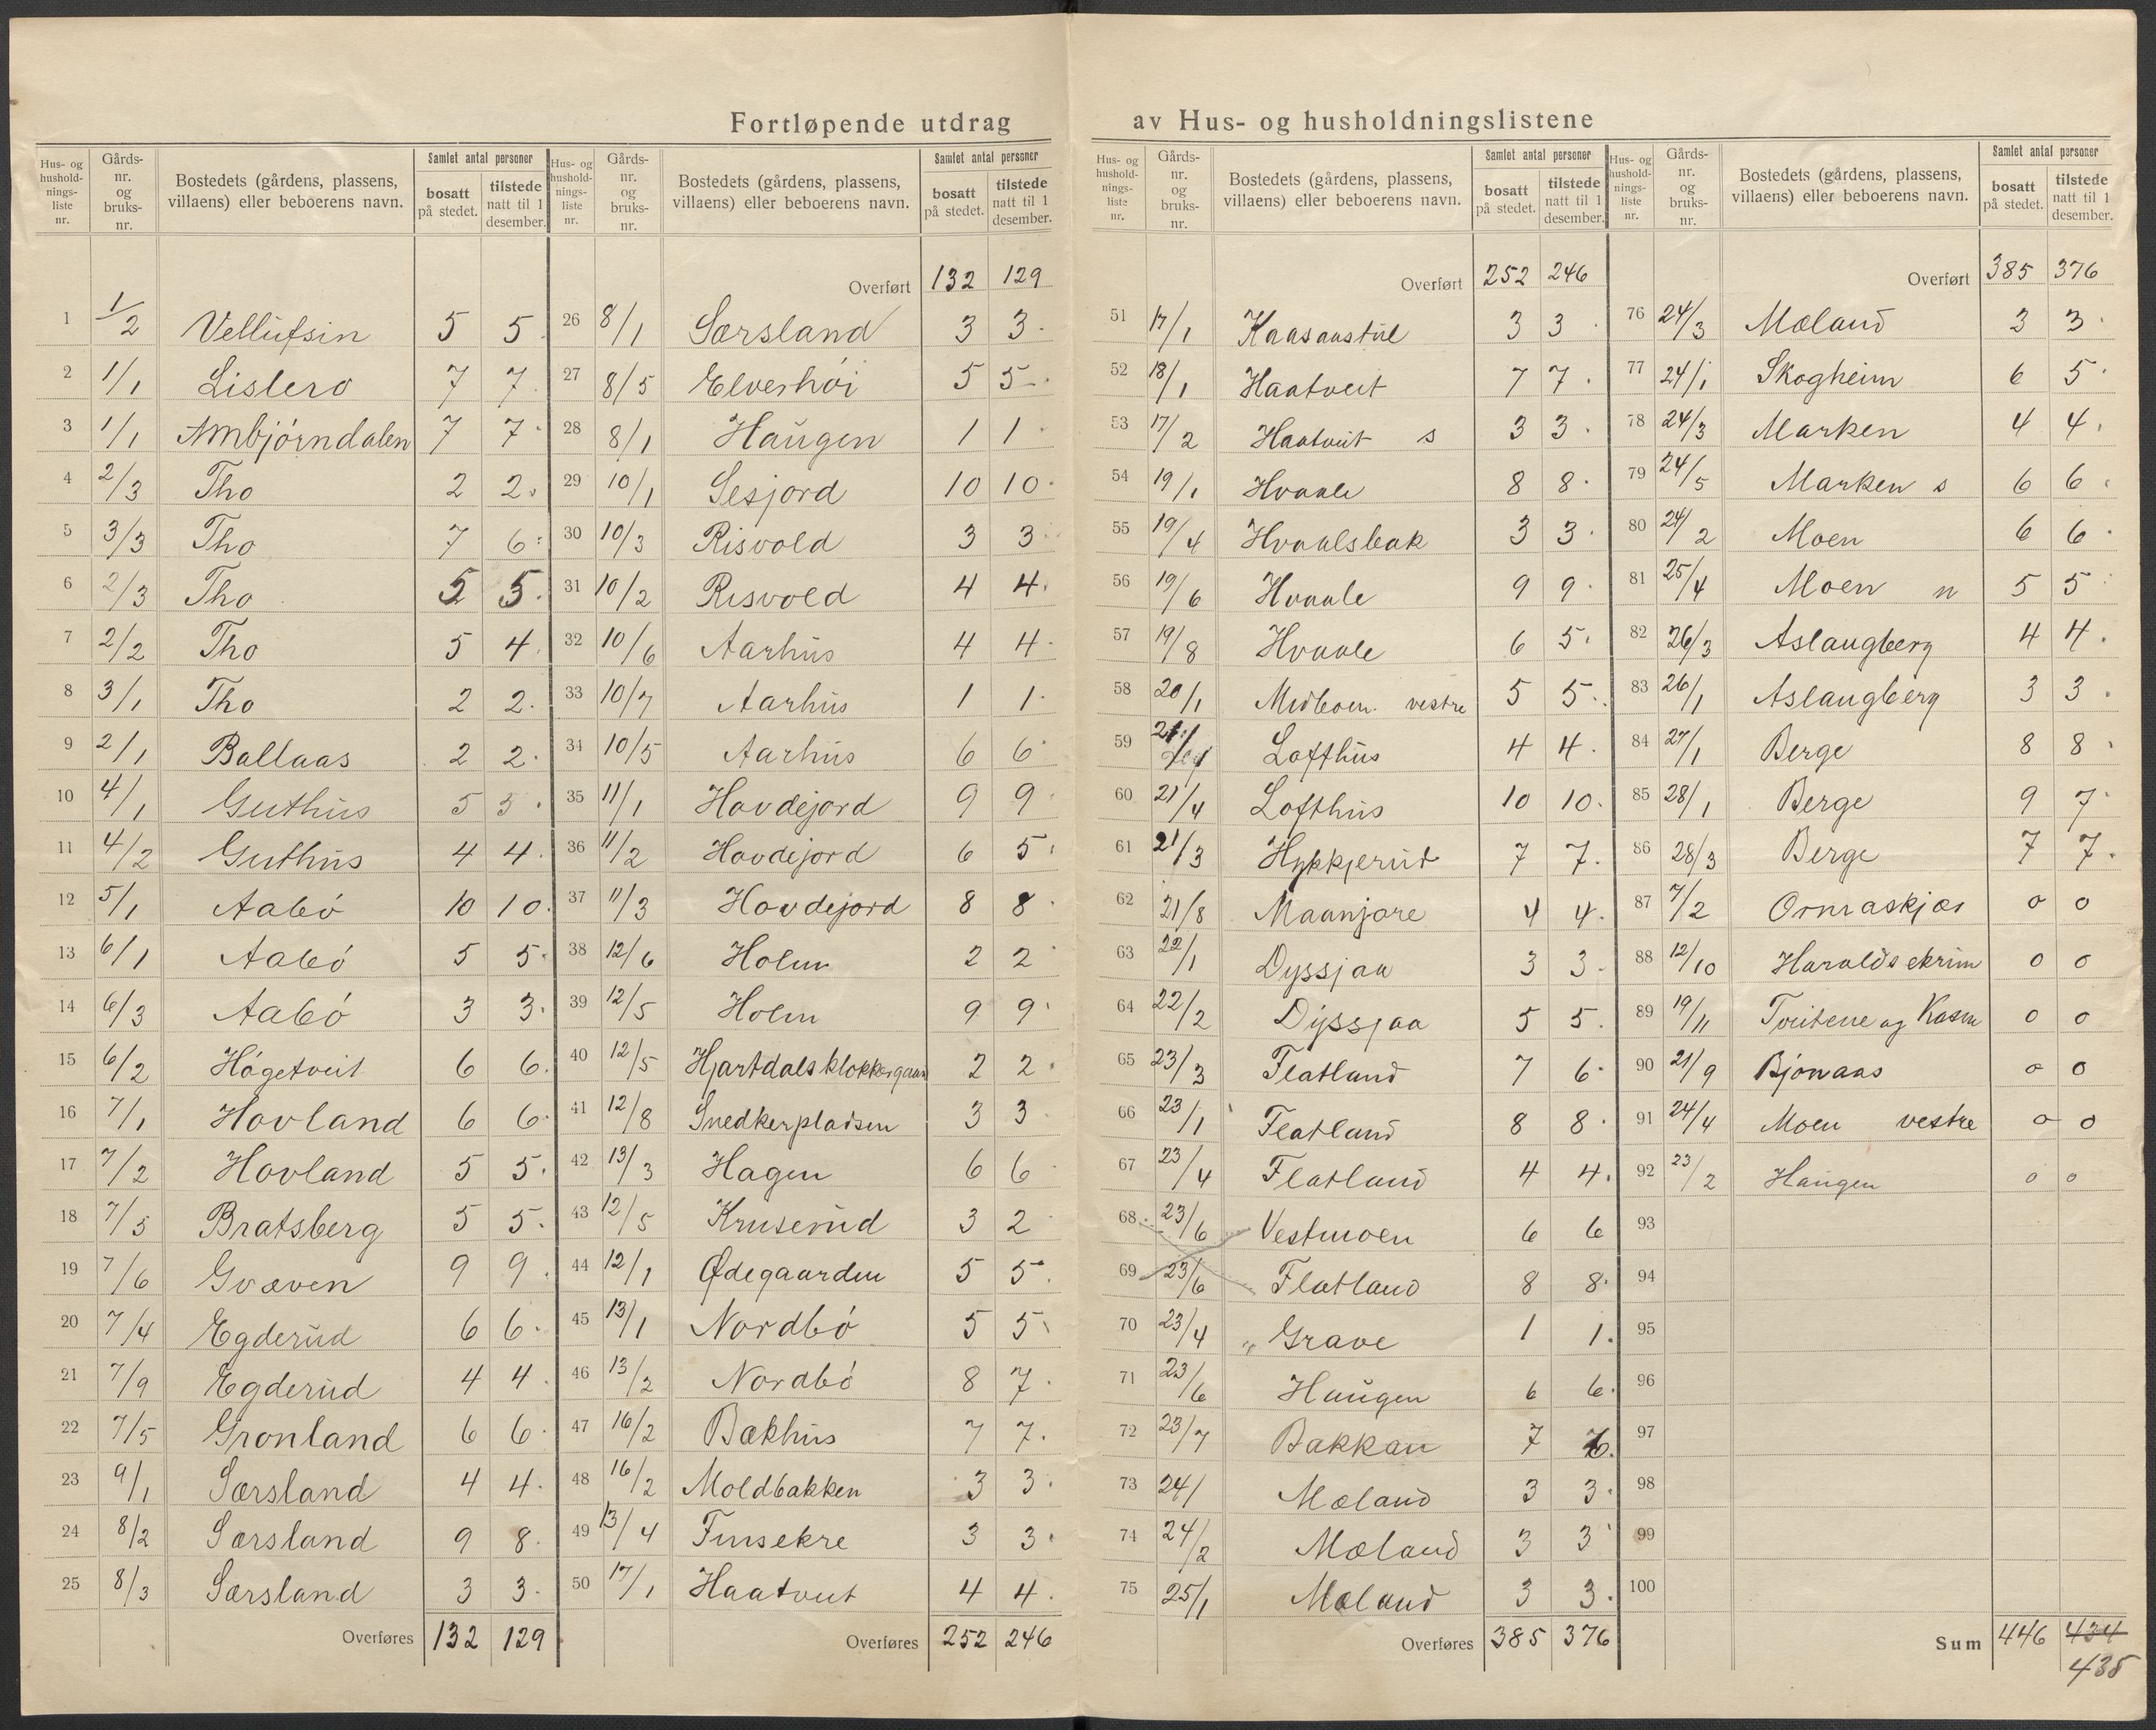 Fortløpende utdrag av Hus- og husholdningslistene
Hus- og husholdnings-liste nr. Gårds-nr. og bruks-nr. Bostedets (gårdens, plassens, villaens) eller beboerens navn. Samlet antal personer bosatt på stedet. tilstede natt til 1 desember.
1 1/2 Vellufsin 5 5
2 1/1 Lislero 7 7
3 1/1 Ambjörndalen 7 7
4 2/3 Tho 2 2
5 3/3 Tho 7 6
6 2/3 Tho 5 5
7 2/2 Tho 5 4
8 3/1 Tho 2 2
9 2/1 Ballaas 2 2
10 4/1 Guthus 5 5
11 4/2 Guthus 4 4
12 5/1 Aabö 10 10
13 6/1 Aabö 5 5
14 6/3 Aabö 3 3
15 6/2 Högetveit 6 6
16 7/1 Hovland 6 6
17 7/2 Hovland 5 5
18 7/3 Bratsberg 5 5
19 7/6 Gvæven 9 9
20 7/4 Egderud 6 6
21 7/9 Egderud 4 4
22 7/5 Gronland 6 6
23 9/1 Særsland 4 4
24 8/2 Særsland 9 8
25 8/3 Særsland 3 3
Overføres 132 129
Hus- og husholdnings-liste nr. Gårds-nr. og bruks-nr. Bostedets (gårdens, plassens, villaens) eller beboerens navn. Samlet antal personer bosatt på stedet. tilstede natt til 1 desember.
Overført 132 129
26 8/1 Særsland 3 3
27 8/5 Elverhöi 5 5
28 8/1 Haugen 1 1
29 10/1 Sesjord 10 10
30 10/3 Risvold 3 3
31 10/2 Risvold 4 4
32 10/6 Aarhus 4 4
33 10/7 Aarhus 1 1
34 10/5 Aarhus 6 6
35 11/1 Hovdejord 9 9
36 11/2 Hovdejord 6 5
37 11/3 Hovdejord 8 8
38 12/6 Holm 2 2
39 12/5 Holm 9 9
40 12/5 Hjartdals klokkergaar 2 2
41 12/8 Snedkerpladsen 3 3
42 13/3 Hagen 6 6
43 12/5 Kruserud 3 2
44 12/1 Ødegaarden 5 5
45 13/1 Nordbö 5 5
46 13/2 Nordbö 8 7
47 16/2 Bækhus 7 7
48 16/2 Moldbakken 3 3
49 13/4 Finsekre 3 3
50 17/1 Haatveit 4 4
Overføres 252 246
Hus- og husholdnings-liste nr. Gårds-nr. og bruks-nr. Bostedets (gårdens, plassens, villaens) eller beboerens navn. Samlet antal personer bosatt på stedet. tilstede natt til 1 desember.
Overført 252 246
51 17/1 Kaasaastul 3 3
52 18/1 Haatveit 7 7
53 17/2 Haatveit s 3 3
54 19/1 Hvaale 8 8
55 19/4 Hvaalsbak 3 3
56 19/6 Hvaale 9 9
57 19/8 Hvaale 6 5
58 20/1 Midboen vestre 5 5
59 Lofthus 4 4
60 21/4 Lofthus 10 10
61 21/3 Hykkjerut 7 7
62 21/8 Maanjore 4 4
63 22/1 Dyssjaa 3 3
64 22/2 Dyssjaa 5 5
65 23/3 Flatland 7 6
66 23/1 Flatland 8 8
67 23/4 Flatland 4 4
68 23/6 Vestmoen 6 6
69 23/6 Flatland 8 8
70 23/4 Grave 1 1
71 23/6 Haugen 6 6
72 23/7 Bakkan 7
73 24/ Mæland 3 3
74 24/2 Mæland 3 3
75 25/1 Mæland 3 3
Overføres 385 376
Hus- og husholdnings-liste nr. Gårds-nr. og bruks-nr. Bostedets (gårdens, plassens, villaens) eller beboerens navn. Samlet antal personer bosatt på stedet. tilstede natt til 1 desember.
Overført 385 376
76 24/3 Mæland 3 3
77 24/1 Skogheim 6 5
78 24/3 Marken 4 4
79 24/5 Marken s 6 6
80 24/2 Moen 6 6
81 25/4 Moen n 5 5
82 26/3 Aslaugberg 4 4
83 26/1 Aslaugberg 3 3
84 27/1 Berge 8 8
85 28/1 Berge 9 7
86 28/3 Berge 7 7
87 7/2 Ormaskjær 0 0
88 12/10 Haraldsskrim 0 0
89 19/11 Tveitene og 0 0
90 21/9 Bjönaas 0 0
91 24/4 Moen vestre 0 0
92 23/2 Haugen 0 0
93
94
95
96
97
98
99
100
Sum 446 434
435